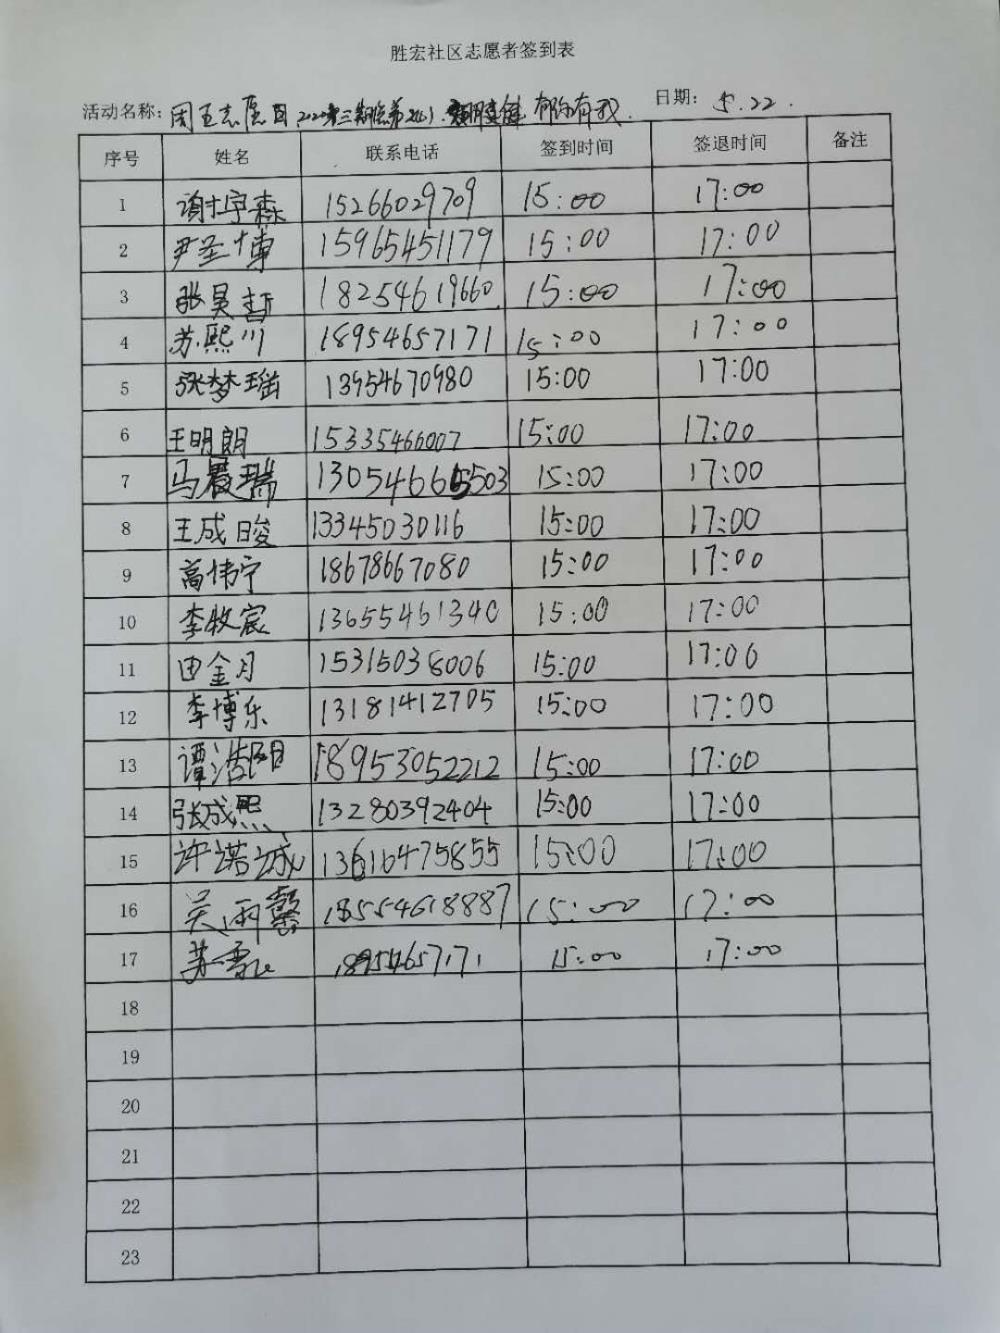 胜宏社区志愿者签到表
活动名称: 周五志愿日 有你有我. 日期: 5.22.
序号 姓名 联系电话 签到时间 签退时间 备注
1 谢宇森 15266029709 15:00 17:00
2 尹圣博 15965451179 15:00 17:00
3 张昊哲 18254619660 15:00 17:00
4 苏熙川 18954657171 15:00 17:00
5 张梦瑶 13954670980 15:00 17:00
6 王明朗 15335466007 15:00 17:00
7 马晨瑞 15:00 17:00
8 王成日俊 13345030116 15:00 17:00
9 高伟宁 18678667080 15:00 17:00
10 李牧宸 13655461340 15:00 17:00
11 田金月 15315038006 15:00 17:00
12 李博乐 13181412705 15:00 17:00
13 谭浩阳 18953052212 15:00 17:00
14 张成熙 13280392404 15:00 17:00
15 许诺诚 13616475855 15:00 17:00
16 吴雨馨 18554618887 15:00 17:00
17 苏 18954657171 15:00 17:00
18
19
20
21
22
23